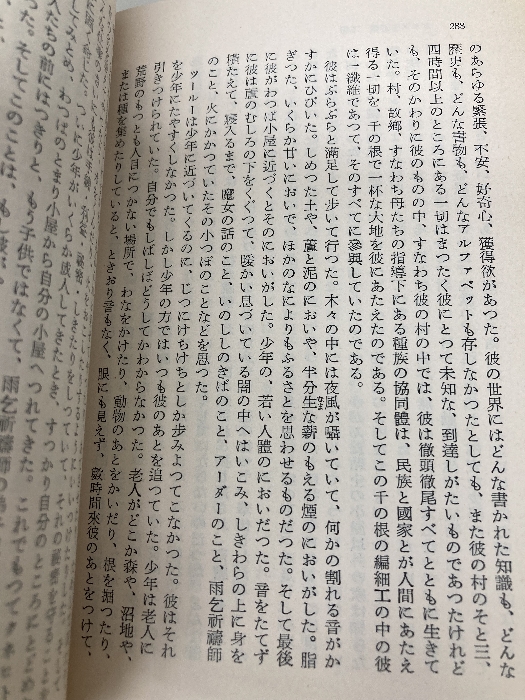 288
のあらゆる緊張、不安、好奇心、獲得欲があつた。彼の世界にはどんな書かれた知識も、どんな
歴史も、どんな書物も、どんなアルファベットも存しなかつたとしても、また彼の村のそと三、
四時間以上のところにある一切はまつたく彼にとつて未知な、到達しがたいものであつたけれど
も、そのかわりに彼のものの中、すなわち彼の村の中では、彼は徹頭徹尾すべてとともに生きて
いた。村、故郷、すなわち母たちの指導下にある種族の協同體は、民族と國家とが人間にあたえ
得る一切を、千の根で一杯な大地を彼にあたえたのである。そしてこの千の根の編細工の中の彼
は一纖維であつて、そのすべてに參與していたのである。
彼はぶらぶらと滿足して歩いて行つた。木々の中には夜風が囁いていて、何かの割れる音がか
すかにひびいた。しめつた土や、蘆と泥のにおいや、半分生な薪のもえる煙のにおいがした。脂
ぎつた、いくらか甘いにおいで、ほかのなによりもふるさとを思わせるものだつた。そして最後
に彼がわつぱ小屋に近づくとそのにおいがした。少年の、若い人體のにおいだつた。音をたてず
に彼は蘆のむしろの下をくぐつて、暖かい息づいている闇の中へはいこみ、しきわらの上に身を
横たえて、寢入るまで、魔女の話のこと、いのししのきばのこと、アーダーのこと、雨乞祈禱師
のこと、火にかかつていたその小つぼのことなどを思つた。
ツールーは少年に近づいてくるのに、じつにけちけちとしか歩みよつてこなかつた。彼はそれ
を少年にたやすくしなかつた。しかし少年の方ではいつも彼のあとを追つていた。少年は老人に
引きつけられていた。自分でもしばしばどうしてかわからなかつた。老人がどこか森や、沼地や、
荒野のもつとも人目につかない場所で、わなをかけたり、動物のあとをかいだり、根を掘つたり、
または種を集めたりしていると、ときおり音もなく、眼にも見えず、數時間來彼のあとをつけて、
人たちの前にはつきりと、もう子供ではなくて、雨乞祈禱師の